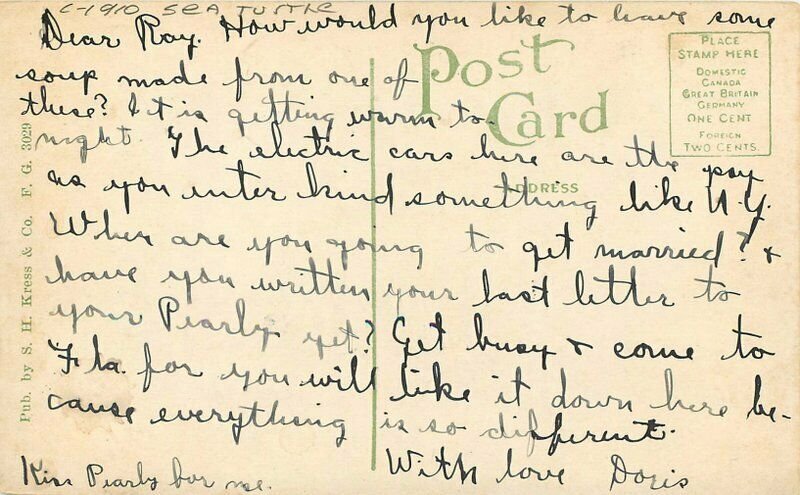 C-1910 SEA TURTLE
Dear Ray. How would you like to have some
soup made from one of
these? It is getting warm to-
night. The electric cars here are the pay
as you enter kind something like N.Y.
When are you going to get married? &
have you written your last letter to
your Pearly yet? Get busy & come to
Fla. for you will like it down here be-
cause everything is so different.
With love Doris
Kiss Pearly for me.
Post
Card
ADDRESS
PLACE
STAMP HERE
DOMESTIC
CANADA
GREAT BRITAIN
GERMANY
ONE CENT
FOREIGN
TWO CENTS.
Pub. by S. H. Kress & Co. F. G. 3029